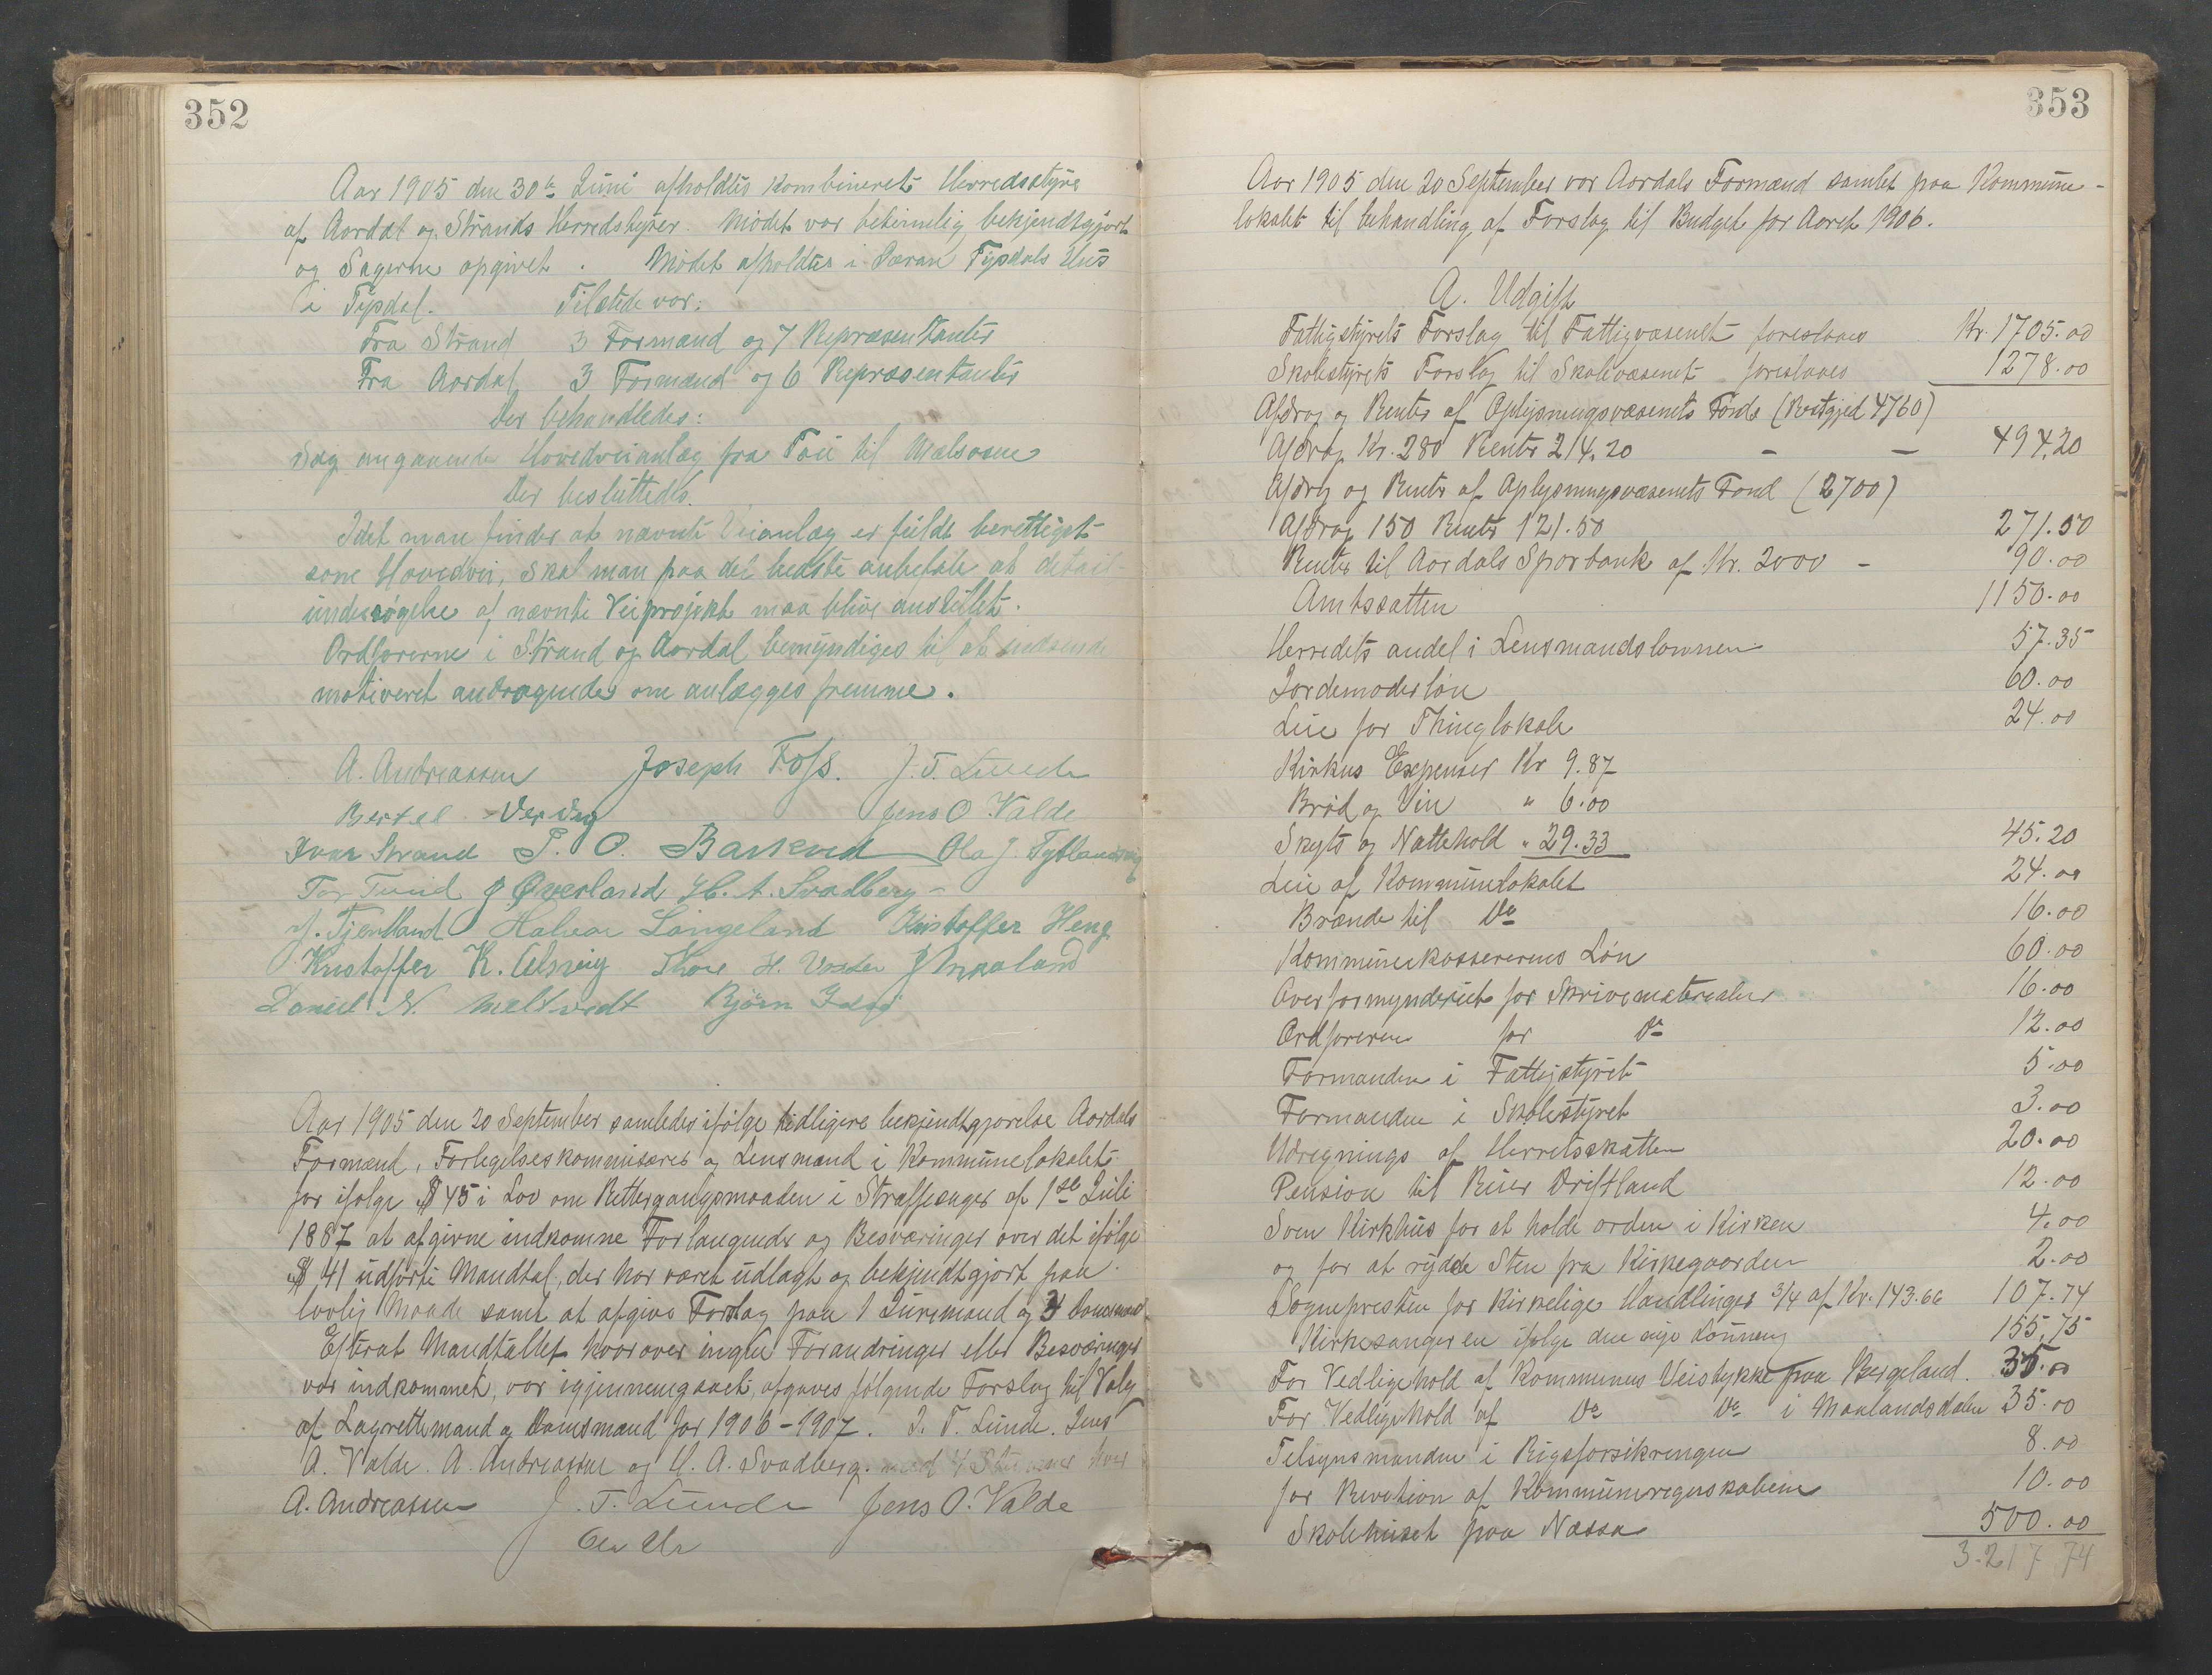 352
Aar 1905 den 30te Juni afholdtes kombineret Herredsstyre
af Aardal og Strands Herredstyrer. Mødet var betimelig bekjendtgjort
og Sagerne opgivet. Mødet afholdtes i Tysdals Hus
i Tysdal. Tilstede var:
Fra Strand 3 Formænd og 7 Repræsentanter
Fra Aardal 3 Formænd og 6 Repræsentanter
Der behandledes:
Sag angaaende Hovedveianlæg fra Tau til
Der besluttedes.
Idet man finder at nævnte Veianlæg er fuldt berettiget
som Hovedvei, skal man paa det bedste anbefale at detail
undersøgelse af nævnte Veiprojekt maa blive anstillet.
Ordførerne i Strand og Aardal bemyndiges til at indsende
motiveret andragende om anlægges fremme.
A. Andreassen Joseph Foss. J. T. Lunde
Bertel Jens O. Valde
Ivar Strand P. O. Barkved Ola J. Tytlandsvig
Tor Øverland H. A. Svadberg
J. Halvor Langeland Kristoffer Heng
Kristoffer K. Thore H.
Daniel N. Meltvedt Bjørn
Aar 1905 den 20 September samledes ifølge tidligere bekjendtgjørelse Aardals
Formænd, Forligelseskommisærer og Lensmand i Kommunelokalet
for ifølge § 45 i Lov om Rettergangsmaaden i Straffesager af 1ste Juli
1887 at afgivne indkomne Forlangender og Besværinger over det ifølge
§ 41 udførte Mandtal, der har været udlagt og bekjendtgjort paa
lovlig Maade samt at afgive Forslag paa 1 Jurymand og 3 Domsmænd
Efterat Mandtallet hvorover ingen Forandringer eller Besværinger
var indkommet, var igjennemgaaet, afgaves følgende Forslag til Valg
af Lagrettemænd og Domsmænd for 1906-1907. J. T. Lunde. Jens
A. Valde. A. Andreassen og H. A. Svadberg. med 4 Stemmer hver
A. Andreassen J. T. Lunde Jens O. Valde
353
Aar 1905 den 20 September var Aardals Formænd samlet paa Kommune-
lokalet til behandling af Forslag til Budget for Aaret 1906.
A. Udgift
Fattigstyrets Forslag til Fattigvæsenet foreslaaes Kr. 1705.00
Skolestyrets Forslag til Skolevæsenet foreslaaes 1278.00
Afdrag og Renter af Oplysningsvæsenets Fonds (Restgjæld 4760)
Afdrag Kr. 280 Renter 214.20 - - 494.20
Afdrag og Renter af Oplysningsvæsenets Fond (2700)
Afdrag 150 Renter 121.50 271.50
Renter til Aardals Sparbank af Kr. 2000 - 90.00
Amtsskatten 1150.00
Herredets andel i Lensmandslønnen 57.35
Jordemoderløn 60.00
Leie for Thinglokale 24.00
Kirkus Expenser Kr 9.87
Brød og Vin " 6.00
Skyts og Nattehold " 29.33 45.20
Leie af Kommunelokalet 24.00
Brænde til Do 16.00
Kommunekassererens Løn 60.00
Overformynderiet for Skrivematerialier 16.00
Ordføreren for Do 12.00
Formanden i Fattigstyret 5.00
Formanden i Skolestyret 3.00
Udregnings af Herretsskatten 20.00
Pension til Driftland 12.00
Sven Kirkhus for at holde orden i Kirken 4.00
og for at rydde Sten fra Kirkegaarden 2.00
Sognepresten for Kirkelige Handlinger 3/4 af Kr. 143.66 107.74
Kirkesangeren ifølge den nye Lønning 155.75
For Vedligehold af Kommunens Veistykke paa Bergeland. 35.00
For Vedligehold af Do Do i Maalandsdalen 35.00
Tilsynsmanden i Rigsforsikringen 8.00
for Revition af Kommuneregnskaberne 10.00
Skolehuset paa Næssa 500.00
3.217 74